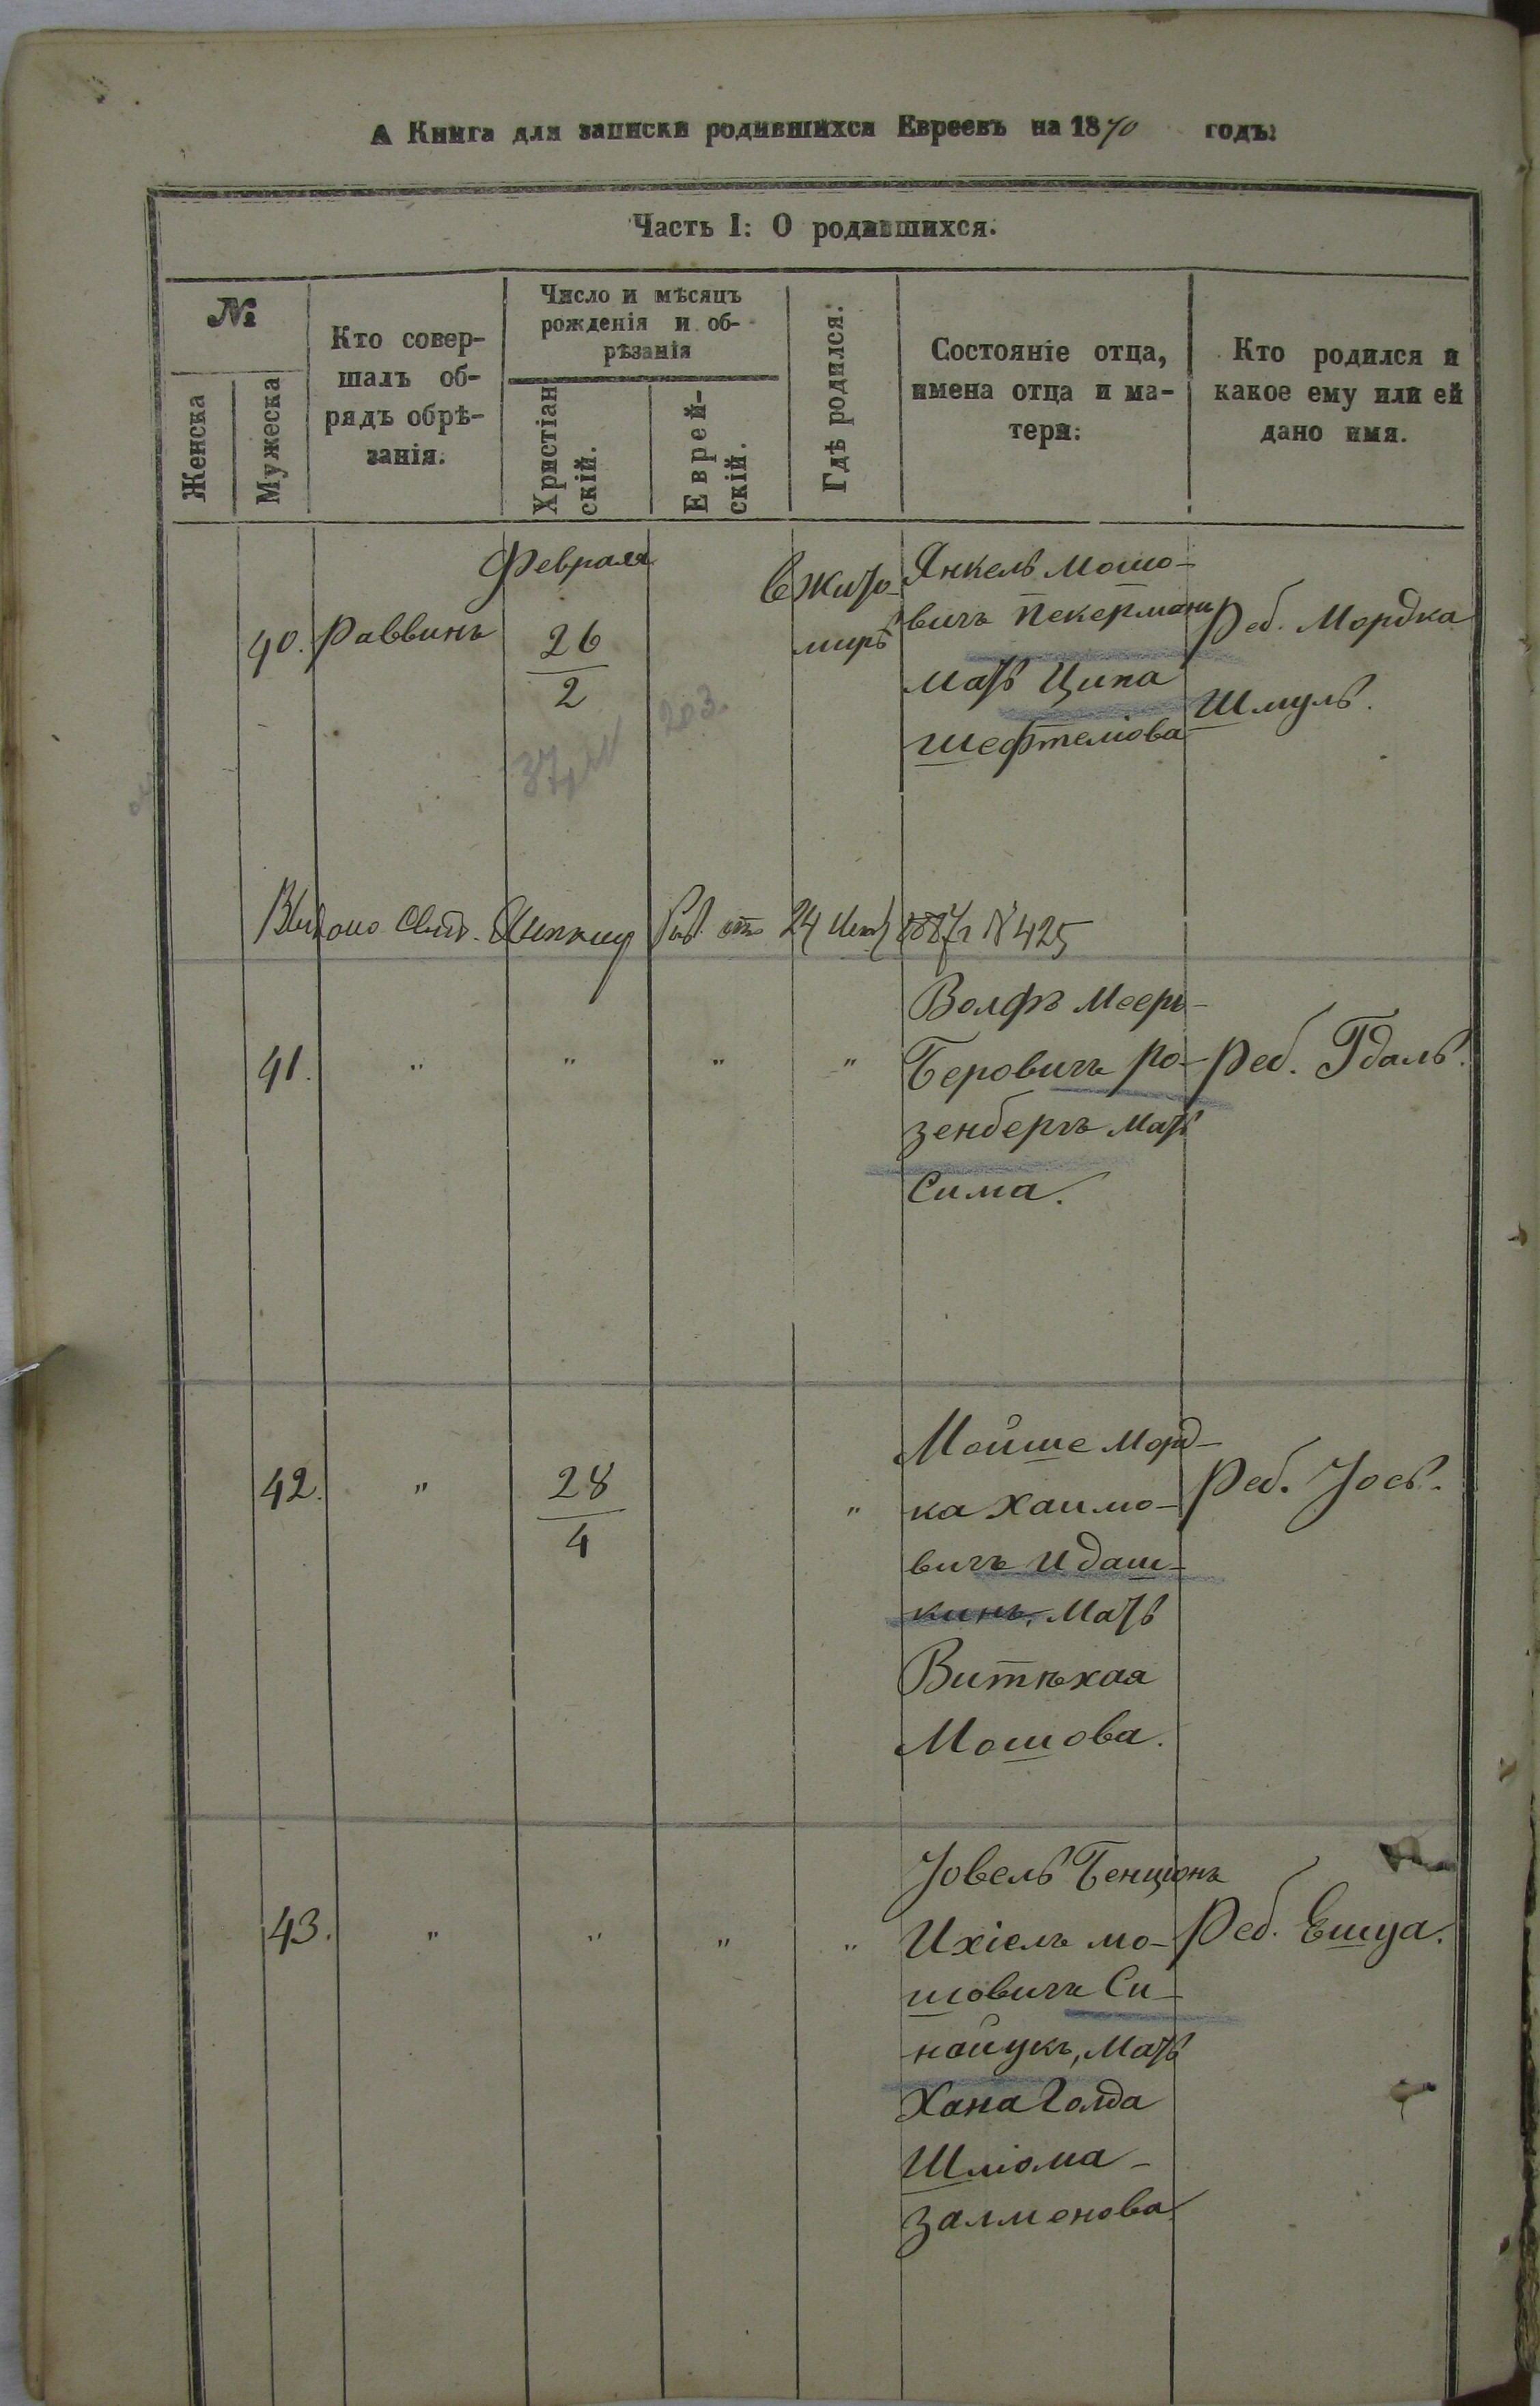 А Книга для записки родившихся Евреевъ на 1870 годъ:
Часть I: О родившихся.
№
Женска
Мужеска
Кто совер-
шалъ об-
рядъ обрѣ-
занія.
Число и мѣсяцъ
рожденія и об-
рѣзанія
Христіан
скій.
Еврей-
скій.
Гдѣ родился.
Состояніе отца,
имена отца и ма-
тери:
Кто родился и
какое ему или ей
дано имя.
40.
Раввинъ
Февраля
26
2
В Жито-
мирѣ
Янкель Мошо-
вичъ Пекерманъ
Мать Ципа
Шефтеліова
Реб. Мордка
Шмуль.
203.
Выдано Свид. от 24 1887 г № 425
41.
"
"
"
"
Волфъ Мееръ-
Беровичъ Ро-
зенбергъ Мать
Сима.
Реб. Гдаль.
42.
"
28
4
"
Мойше Морд-
ка Хаимо-
вичъ Идаш-
кинъ, Мать
Витяхая
Мошова.
Реб. Іось.
43.
"
"
"
"
Іовель Бенціонъ
Ихіель Мо-
шовичъ Си-
найукъ, Мать
Хана Голда
Шліома-
Залменова
Реб. Ешуа.